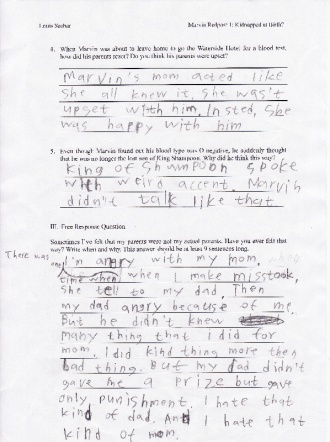 Louis Sachar Marvin Redpost 1: Kidnapped at Birth?
4. When Marvin was about to leave home to go the Waterside Hotel for a blood test,
how did his parents react? Do you think his parents were upset?
Marvin's mom acted like
She all knew it, She was't
upset with him. Insted, She
was happy with him
5. Even though Marvin found out his blood type was O negative, he suddenly thought
that he was no longer the lost son of King Shampoon. Why did he think this way?
King of Shampoon spoke
with weird accent. Marvin
didn't talk like that
III. Free Response Question
Sometimes I've felt that my parents were not my actual parents. Have you ever felt that
way? Write when and why. This answer should be at least 9 sentences long.
There was
I'm angry with my mom,
time when when I make misstook,
She tell to my dad, Then
my dad angry because of me.
But he didn't knew
many thing that I did for
mom. I did kind thing more then
bad thing. But my dad didn't
gave me a prize but gave
only punishment. I hate that
kind of dad. And I hate that
kind of mom.